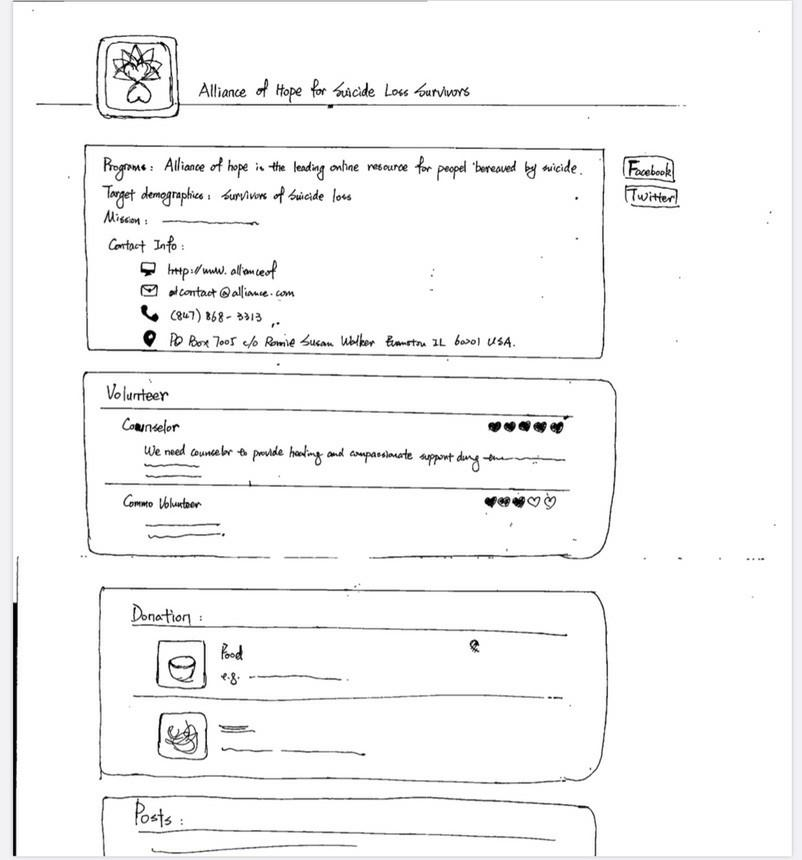 Alliance of Hope for Suicide Loss Survivors
Programs: Alliance of hope is the leading online resource for peopel bereaved by suicide.
Facebook
Target demographics: Survivors of Suicide loss
Twitter
Mission:
Contact Info:
http://www.allianceof
contact@alliance.com
(847) 868-3313
PO Box 7005 c/o Ronnie Susan Walker Evanston IL 60201 USA.
Volunteer
Counselor
We need counselor to provide healing and compassionate support
Commo Volunteer
Donation:
Food
e.g.
Posts: